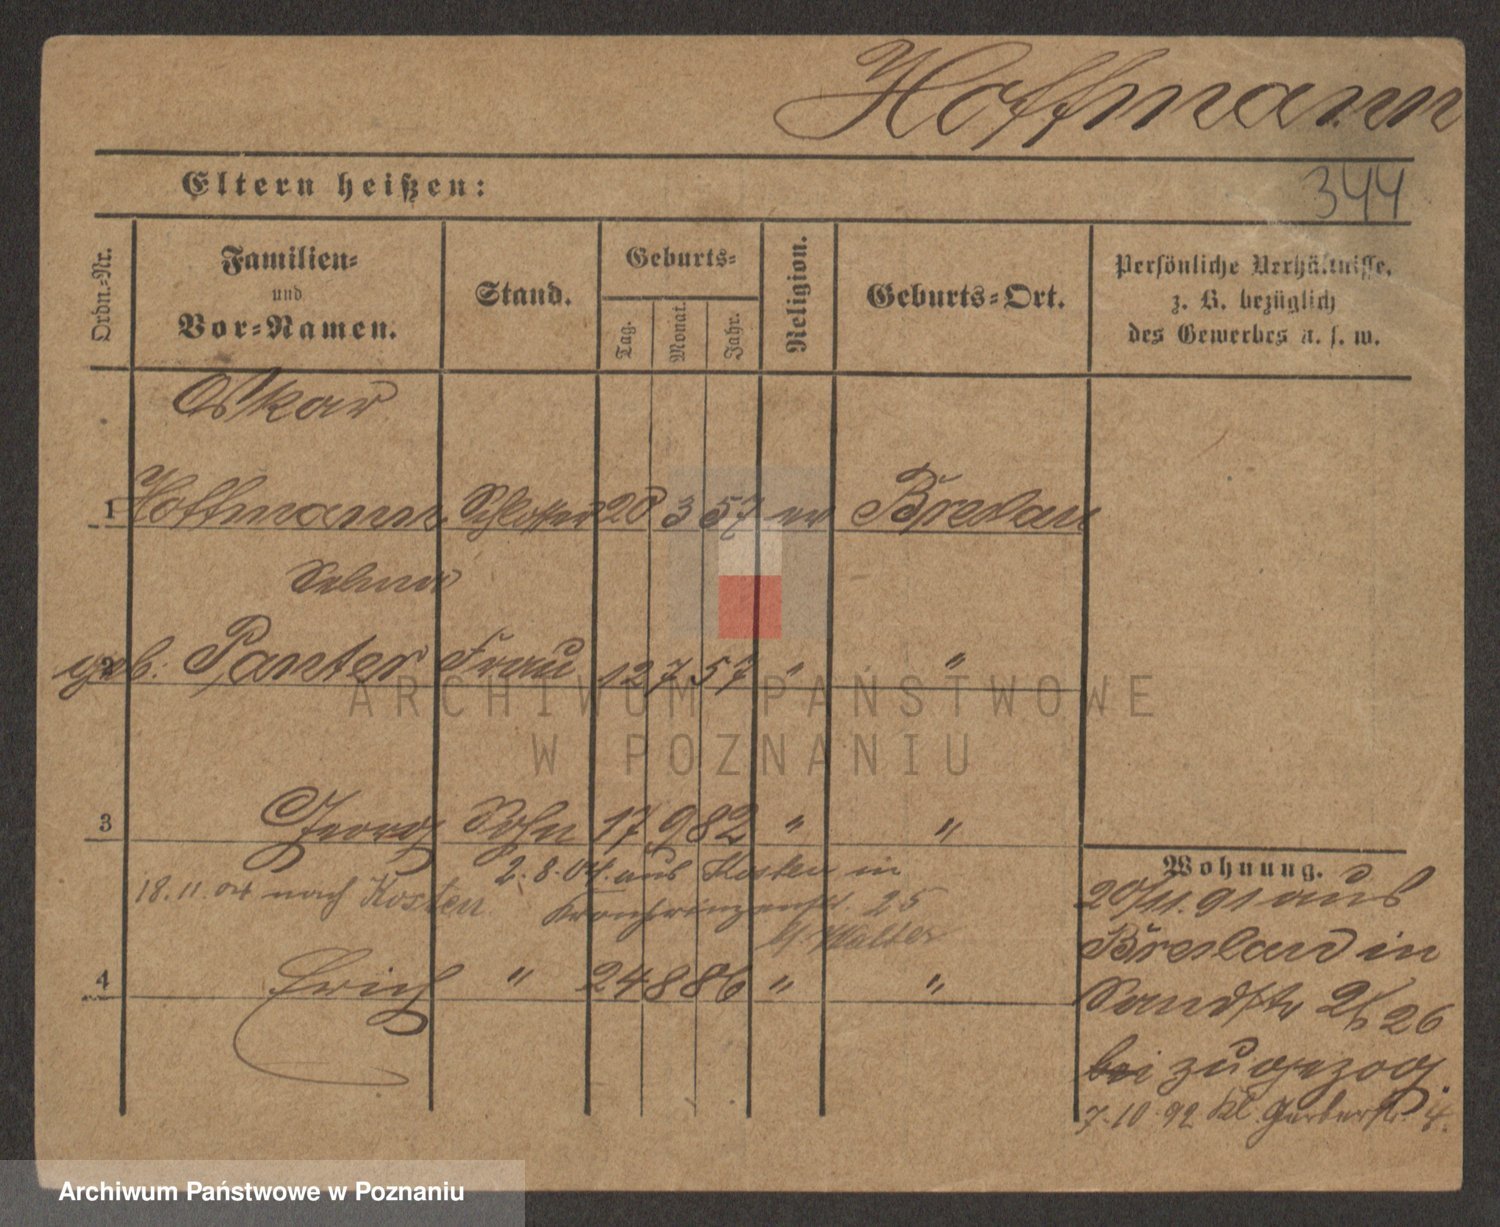 Hoffmann
344
Eltern heißen:
Ordn.-Nr.
Familien-
und
Vor-Namen.
Stand.
Geburts-
Tag.
Monat.
Jahr.
Religion.
Geburts-Ort.
Persönliche Verhältnisse,
z. B. bezüglich
des Gewerbes u. s. w.
Oskar
1 Hoffmann Schlosser 20 3 57 ev Breslau
Selma
2 geb. Panter Frau 12 7 57 " "
3 Georg Sohn 17 9 82 " "
2.8.04. aus Kosten in
18.11.04 nach Kosten
Kronprinzenstr. 25
b/ Walter
4 Erich " 24 8 86 " "
Wohnung.
20/11.91 aus
Breslau in
Sandstr 2/26
bei zugezog.
7.10.92 Kl. Gerberstr. 4.
ARCHIWUM PAŃSTWOWE
W POZNANIU
Archiwum Państwowe w Poznaniu